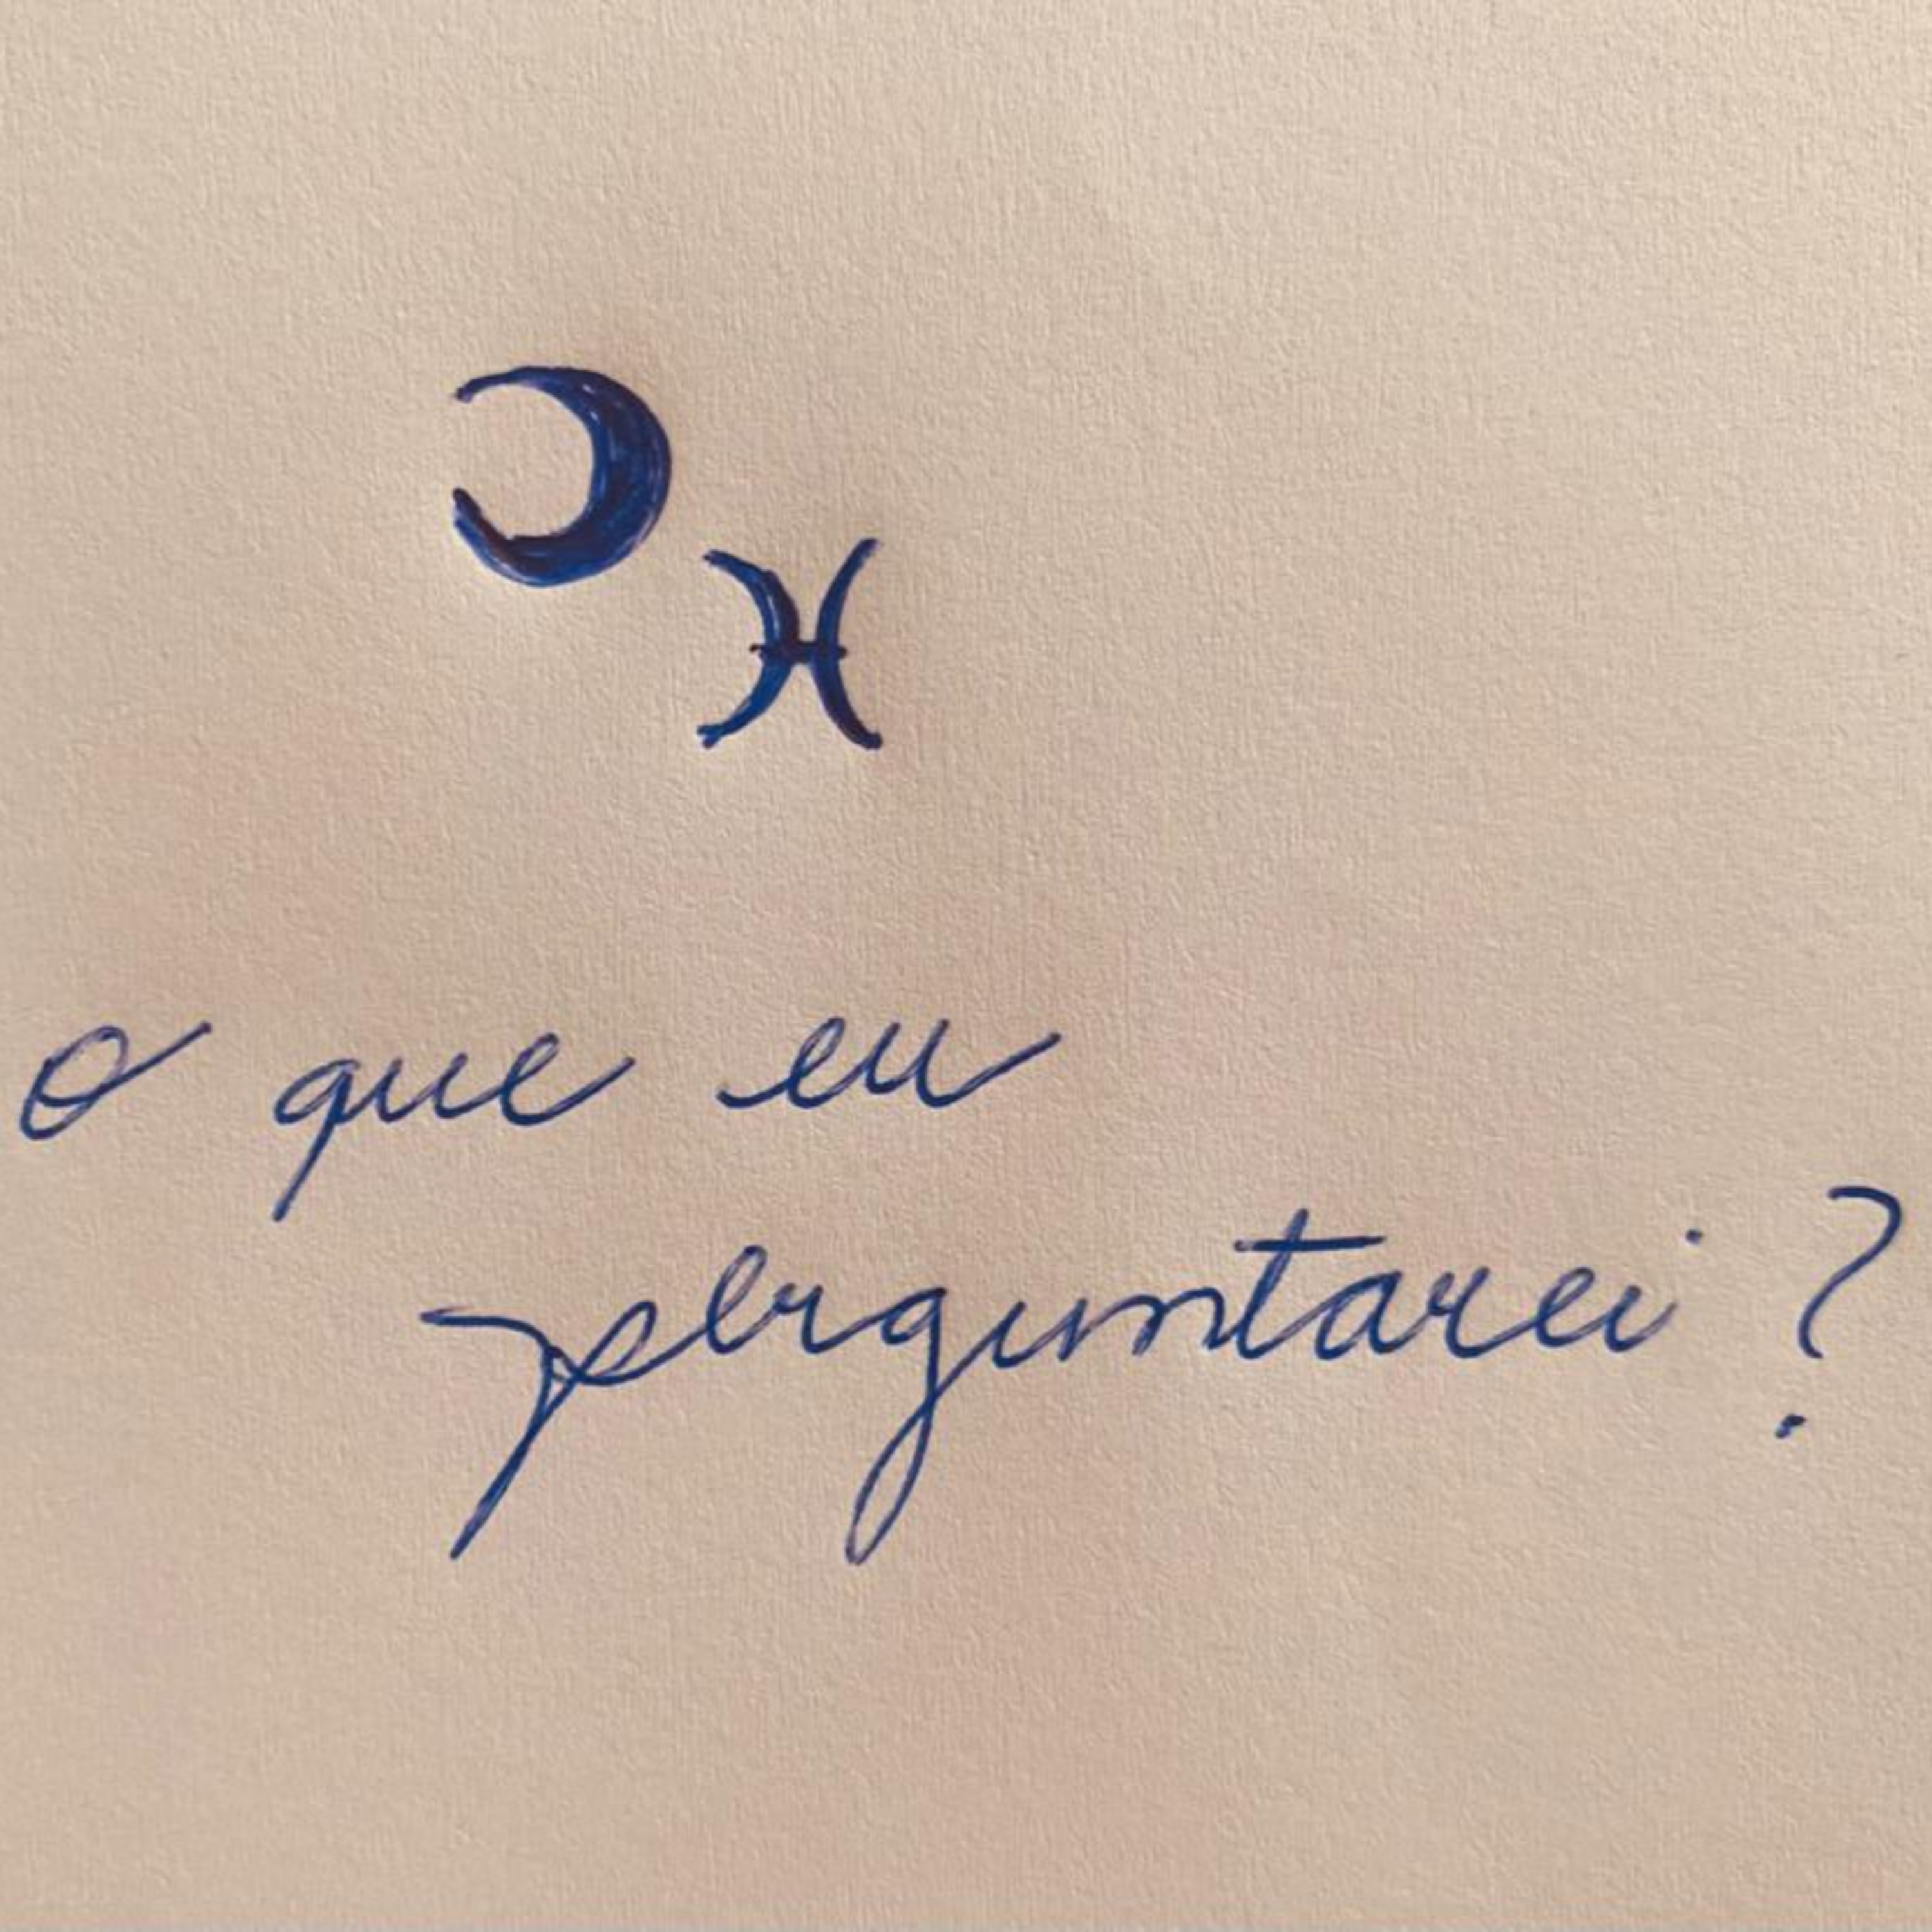 o que eu
perguntarei ?